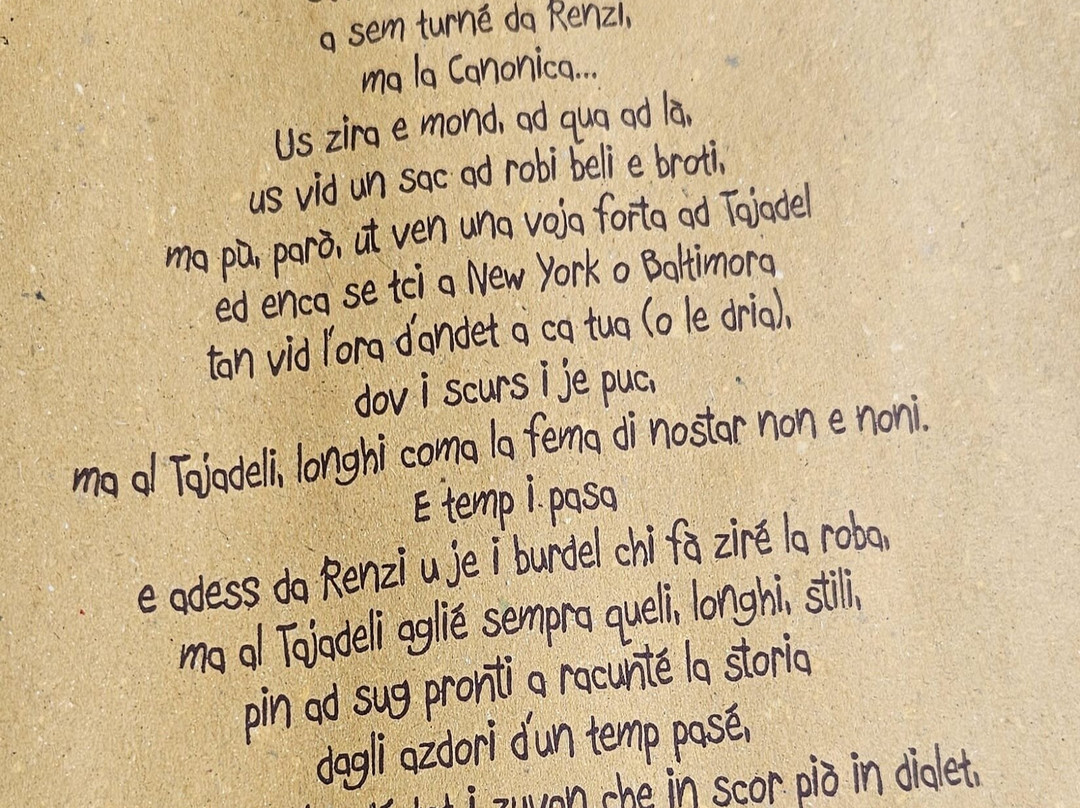 a sem turné da Renzi,
ma la Canonica...
Us zira e mond, ad qua ad là,
us vid un sac ad robi beli e broti,
ma pù, parò, ut ven una voja forta ad Tajadel
ed enca se tci a New York o Baltimora
tan vid l'ora d'andet a ca tua (o le dria),
dov i scurs i je puc,
ma al Tajadeli, longhi coma la fema di nostar non e noni.
E temp i pasa
e adess da Renzi u je i burdel chi fà ziré la roba,
ma al Tajadeli aglié sempra queli, longhi, stili,
pin ad sug pronti a racunté la storia
dagli azdori d'un temp pasé,
i zuvan che in scor piò in dialet.